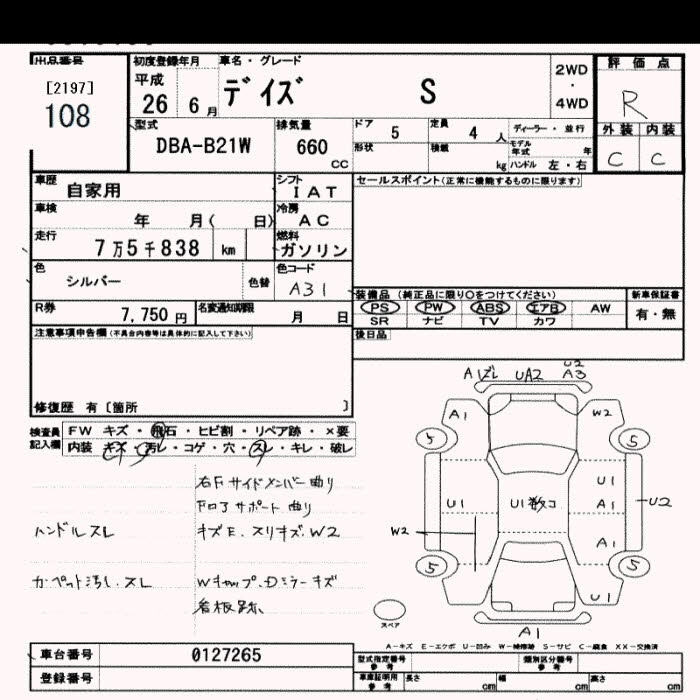 出品番号 初度登録年月 車名・グレード 評価点
[2197] 平成 デイズ S 2WD・4WD R
108 26 6月
外装 内装
型式 排気量 ドア 5 定員 4人 ディーラー・並行
C C
DBA-B21W 660cc 形状 積載 kg モデル年式 年
ハンドル 左・右
車歴 自家用 シフト IAT セールスポイント(正常に機能するものに限ります)
車検 年 月( 日) 冷房 AC
走行 7万5千838 km 燃料 ガソリン
色 シルバー 色替 色コード A31
装備品 (純正品に限り○をつけてください) 新車保証書
R券 7,750円 名変通知期限 月 日
PS PW ABS エアB AW 有・無
SR ナビ TV カワ
注意事項申告欄(不具合内容等は具体的に記入して下さい) 後日品
修復歴 有〔箇所 〕
検査員記入欄 FW キズ・飛石・ヒビ割・リペア跡・×要
内装 キズ・汚レ・コゲ・穴・スレ・キレ・破レ
右Fサイドメンバー曲り
Fロアサポート曲り
ハンドルスレ キズE.スリキズ.W2
カーペット汚レ.スレ Wキャップ.Dミラーキズ
看板跡.
U2
Aズレ UA2 A3
A1 W2
5 5
U1
U1 U1数コ A1 U2
W2 A1
5 5
U1
スペア
A1
A-キズ E-エクボ U-凹み W-補修跡 S-サビ C-腐食 XX-交換済
車台番号 0127265 型式指定番号 参考 類別区分番号 参考
登録番号 車庫証明用 参考 長さ cm 幅 cm 高さ cm